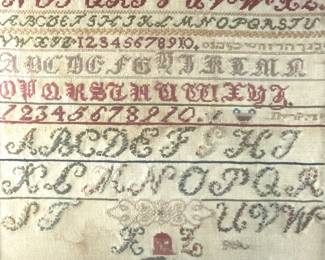 N O P Q R S T U V W X Z
A B C D E F G H I K L M N O P Q R S T U
V W X Y Z 1 2 3 4 5 6 7 8 9 10.
A B C D E F G H I K L M N
O P Q R S T U V W X Y Z.
1 2 3 4 5 6 7 8 9 10.
A B C D E F G H I
K L M N O P Q R
S T U V W
X Z